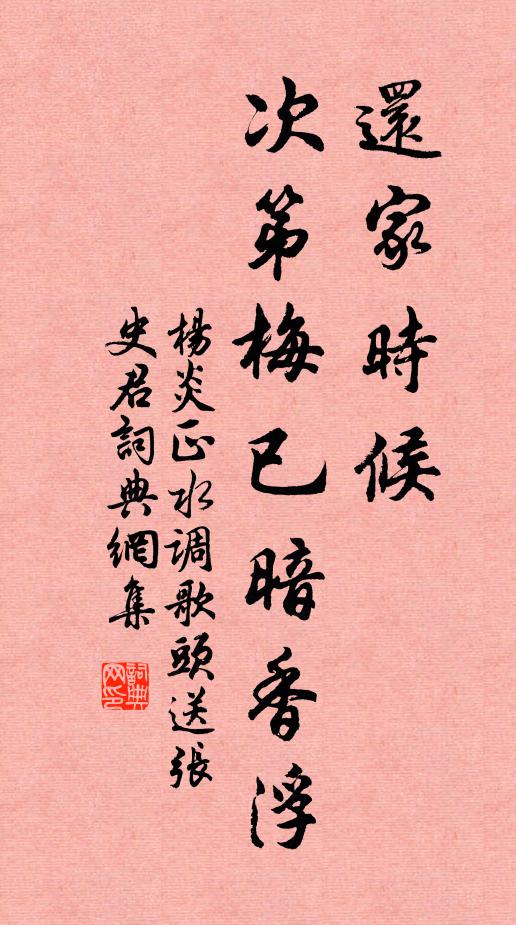 還家時候
次第梅已暗香浮
楊炎正水调歌頭送張
史君詞典網集
詞典网印